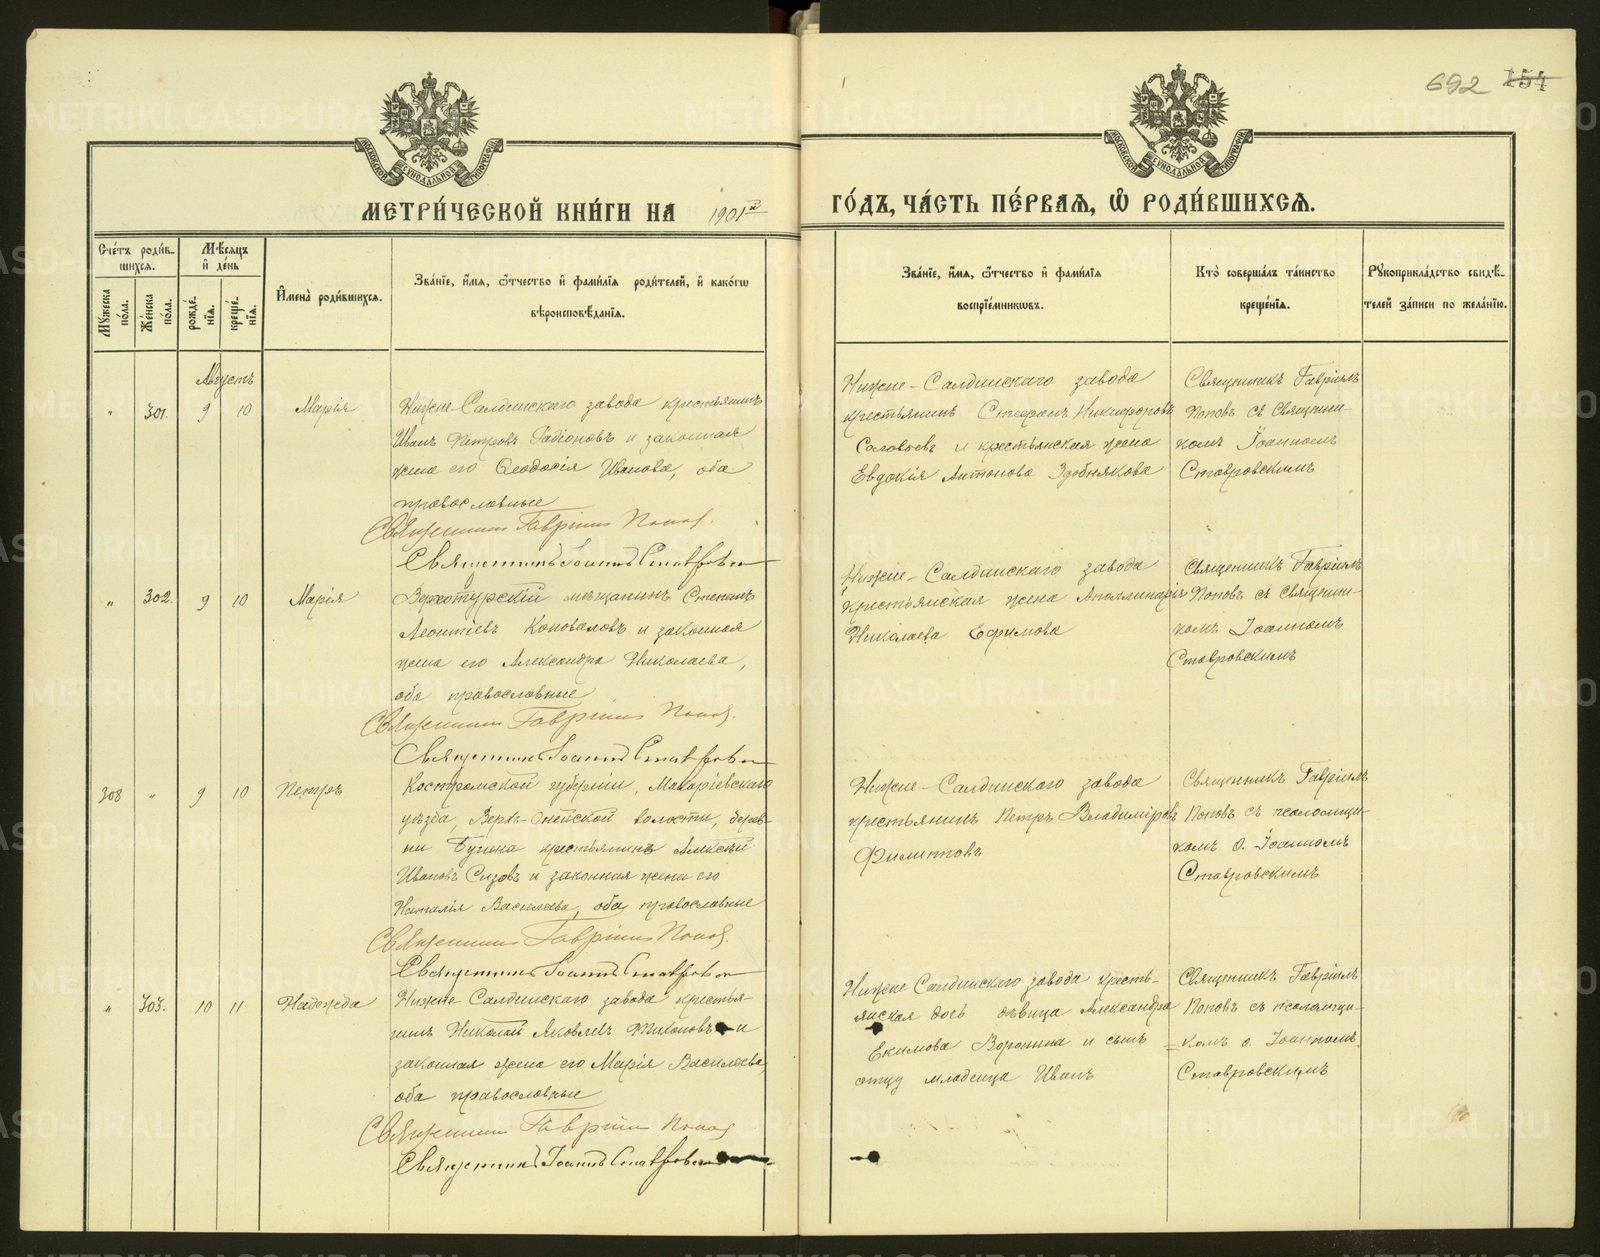 692 154
МЕТРИ́ЧЕСКОЙ КНИ́ГИ НА 1901й
ГО́ДЪ, ЧА́СТЬ ПЕ́РВАЯ, Ѽ РОДИ́ВШИХСЯ.
Сче́тъ роди́в-
шихся.
Мꙋ́жеска
по́ла.
Же́нска
по́ла.
Мѣ́сяцъ
и҆ де́нь
рожде́-
нїѧ.
креще́-
нїѧ.
И҆мена̀ роди́вшихся.
Зва́нїе, и҆́мя, ѻ҆́тчество и҆ фами́лїя роди́телей, и҆ како́гѡ
вѣроисповѣ́данїя.
Зва́нїе, и҆́мя, ѻ҆́тчество и҆ фами́лїя
воспрїе́мниковъ.
Кто̀ соверша́лъ та́инство
креще́нїя.
Рꙋкоприкла́дство свидѣ́-
телей за́писи по жела́нїю.
Августъ
" 301. 9 10 Марія
Нижне-Салдинскаго завода крестьянинъ
Иванъ Петровъ Радіоновъ и законная
жена его Ѳеодосія Иванова, оба
православные
Священникъ Гавріилъ Поповъ.
Священникъ Іоаннъ Ставровскій
Нижне-Салдинскаго завода
крестьянинъ Стефанъ Никифоровъ
Соловьевъ и крестьянская жена
Евдокія Антонова Здобнякова
Священникъ Гавріилъ
Поповъ съ Священни-
комъ Іоанномъ
Ставровскимъ
" 302. 9 10 Марія
Верхотурскій мѣщанинъ Степанъ
Леонтіевъ Коноваловъ и законная
жена его Александра Николаева,
оба православные
Священникъ Гавріилъ Поповъ.
Священникъ Іоаннъ Ставровскій
Нижне-Салдинскаго завода
крестьянская жена Аполлинарія
Николаева Ефимова
Священникъ Гавріилъ
Поповъ съ Священни-
комъ Іоанномъ
Ставровскимъ
308 " 9 10 Петръ
Костромской губерніи, Макаріевскаго
уѣзда, Верхъ- волости, дерев-
ни крестьянинъ Алексѣй
Ивановъ Сизовъ и законная жена его
Наталія Василева, оба православные
Священникъ Гавріилъ Поповъ.
Священникъ Іоаннъ Ставровскій
Нижне-Салдинскаго завода
крестьянинъ Петръ Владиміровъ
Филипповъ
Священникъ Гавріилъ
Поповъ съ псаломщи-
комъ о. Іоанномъ
Ставровскимъ
" 303. 10 11 Надежда
Нижне-Салдинскаго завода крестья-
нинъ Николай Яковлевъ Тихоновъ и
законная жена его Марія Василева,
оба православные
Священникъ Гавріилъ Поповъ
Священникъ Іоаннъ Ставровскій
Нижне Салдинскаго завода кресть-
янская дочь дѣвица Александра
Екимова Воронина и сынъ
отцу младенца Иванъ
Священникъ Гавріилъ
Поповъ съ псаломщи-
комъ о. Іоанномъ
Ставровскимъ